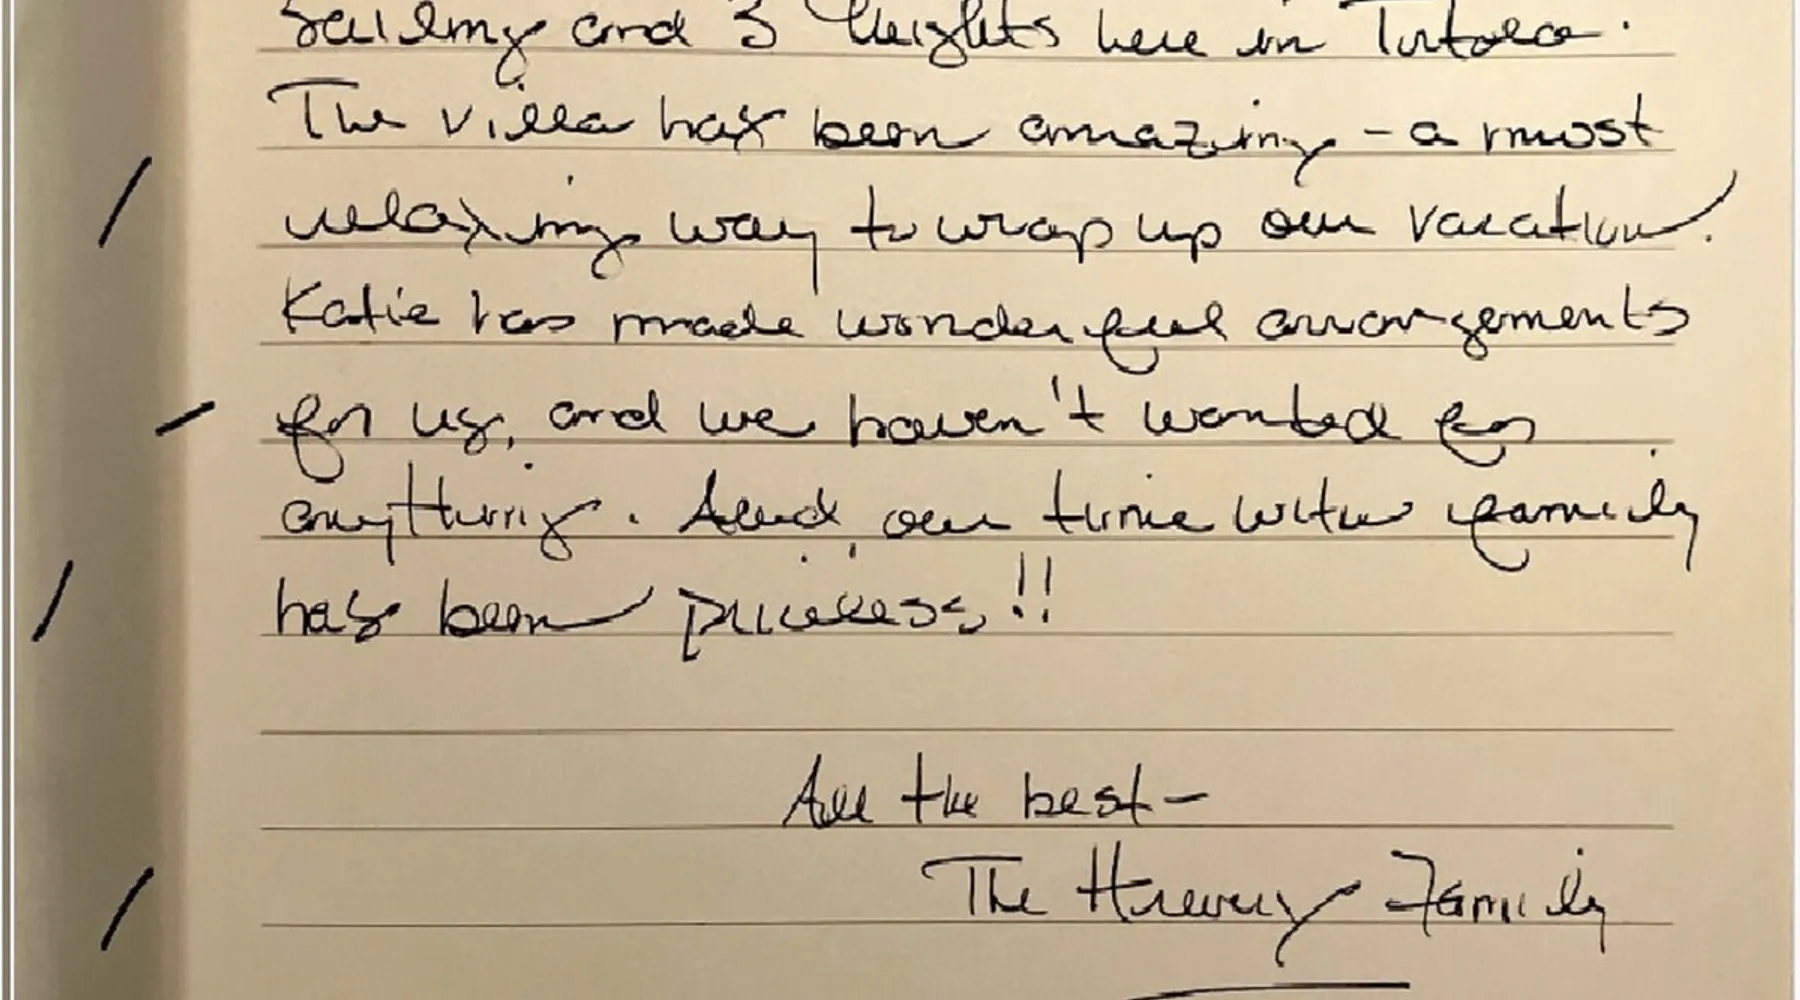 Sailing and 3 nights here in Tortola.
The villa has been amazing - a most
relaxing way to wrap up our vacation.
Katie has made wonderful arrangements
for us, and we haven't wanted for
anything. And, our time with family
has been priceless!!
All the best-
The Family